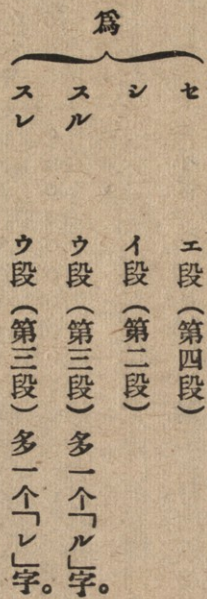 爲
セ　エ段（第四段）
シ　イ段（第二段）
スル　ウ段（第三段）多一个「ル」字。
スレ　ウ段（第三段）多一个「レ」字。